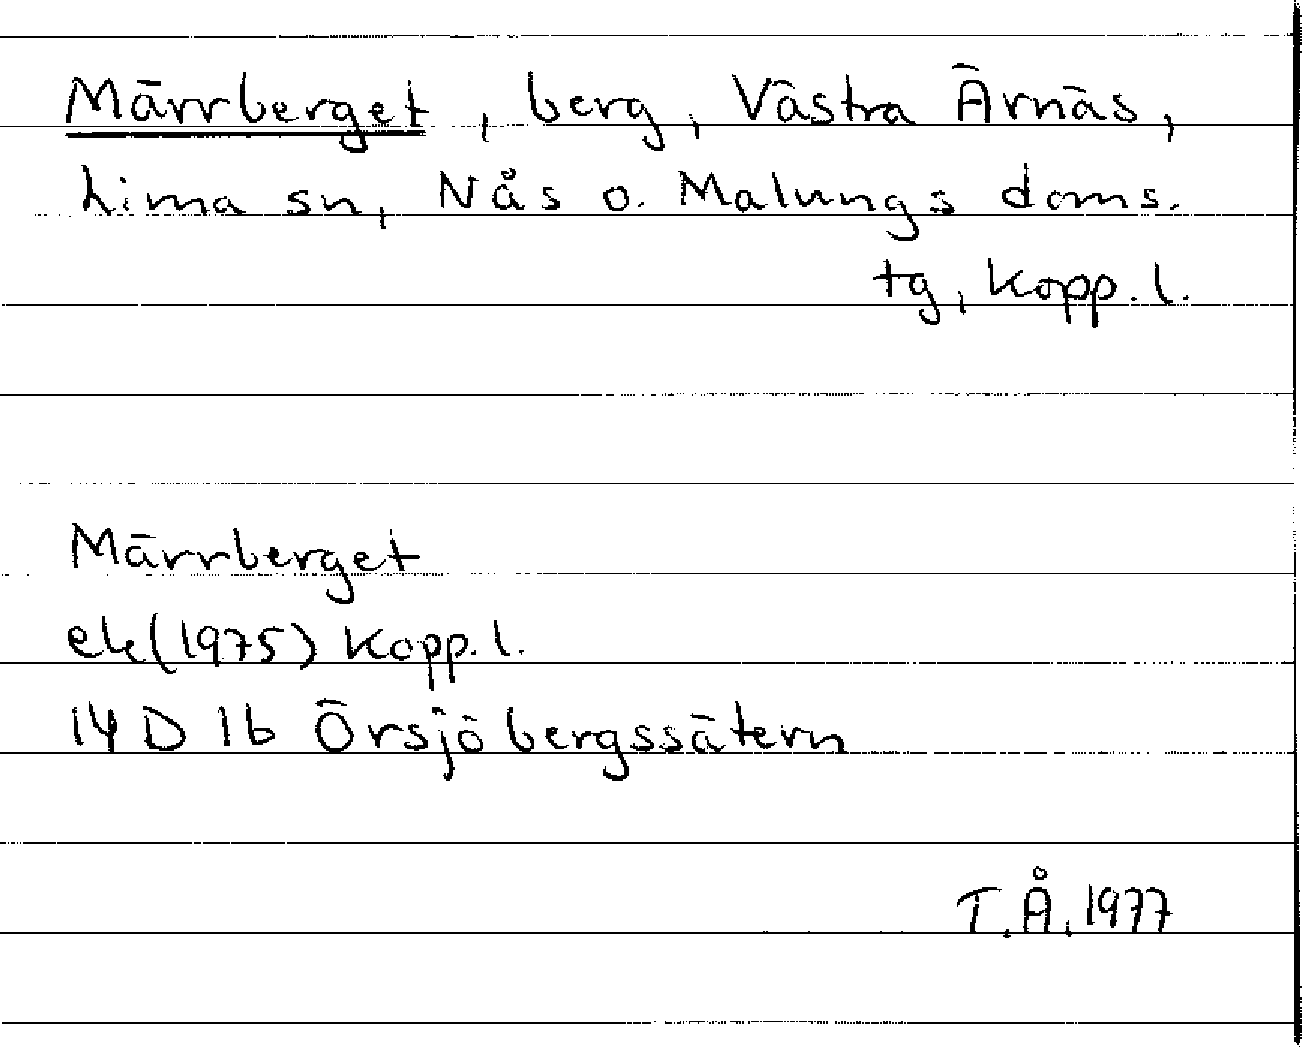 Märrberget, berg, Västra Ärnäs,
Lima sn, Nås o. Malungs doms.
tg, Kopp. l.
Märrberget
ek(1975) Kopp. l.
14 D 1b Örsjöbergssätern
T.Å. 1977